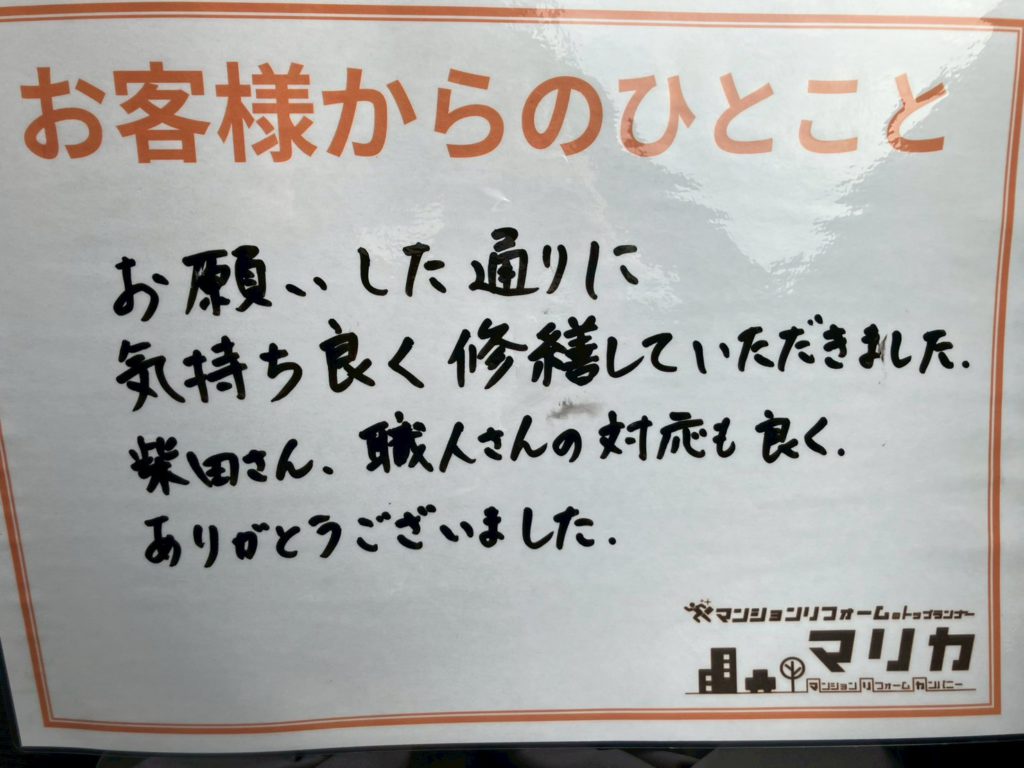 お客様からのひとこと
お願いした通りに
気持ち良く修繕していただきました.
柴田さん、職人さんの対応も良く.
ありがとうございました.
マンションリフォームのトップランナー
マリカ
マンションリフォームカンパニー